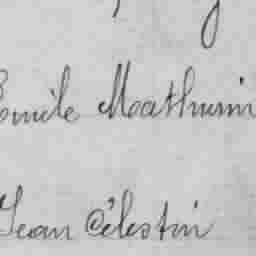 Emile Mathurin
Jean Célestin